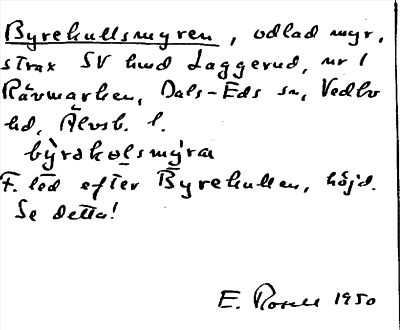 Byrekullsmyren, odlad myr,
strax SV hmd Laggerud, nr 1
Rävmarken, Dals-Eds sn, Vedbo
hd, Älvsb. l.
bỳrəkəlsmỳra
F. led efter Byrekullen, höjd.
Se detta!
E. 1950